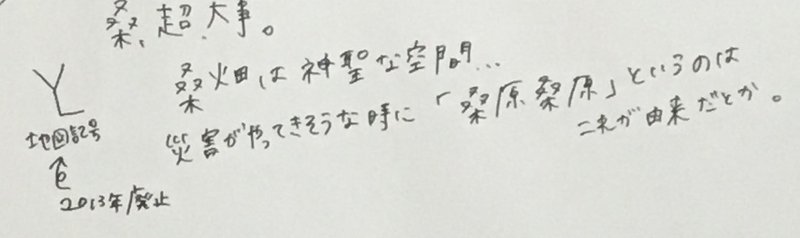 桑、超、大事。
桑畑は神聖な空間...
災害がやってきそうな時に「桑原桑原」というのは
これが由来だとか。
地図記号
2013年廃止